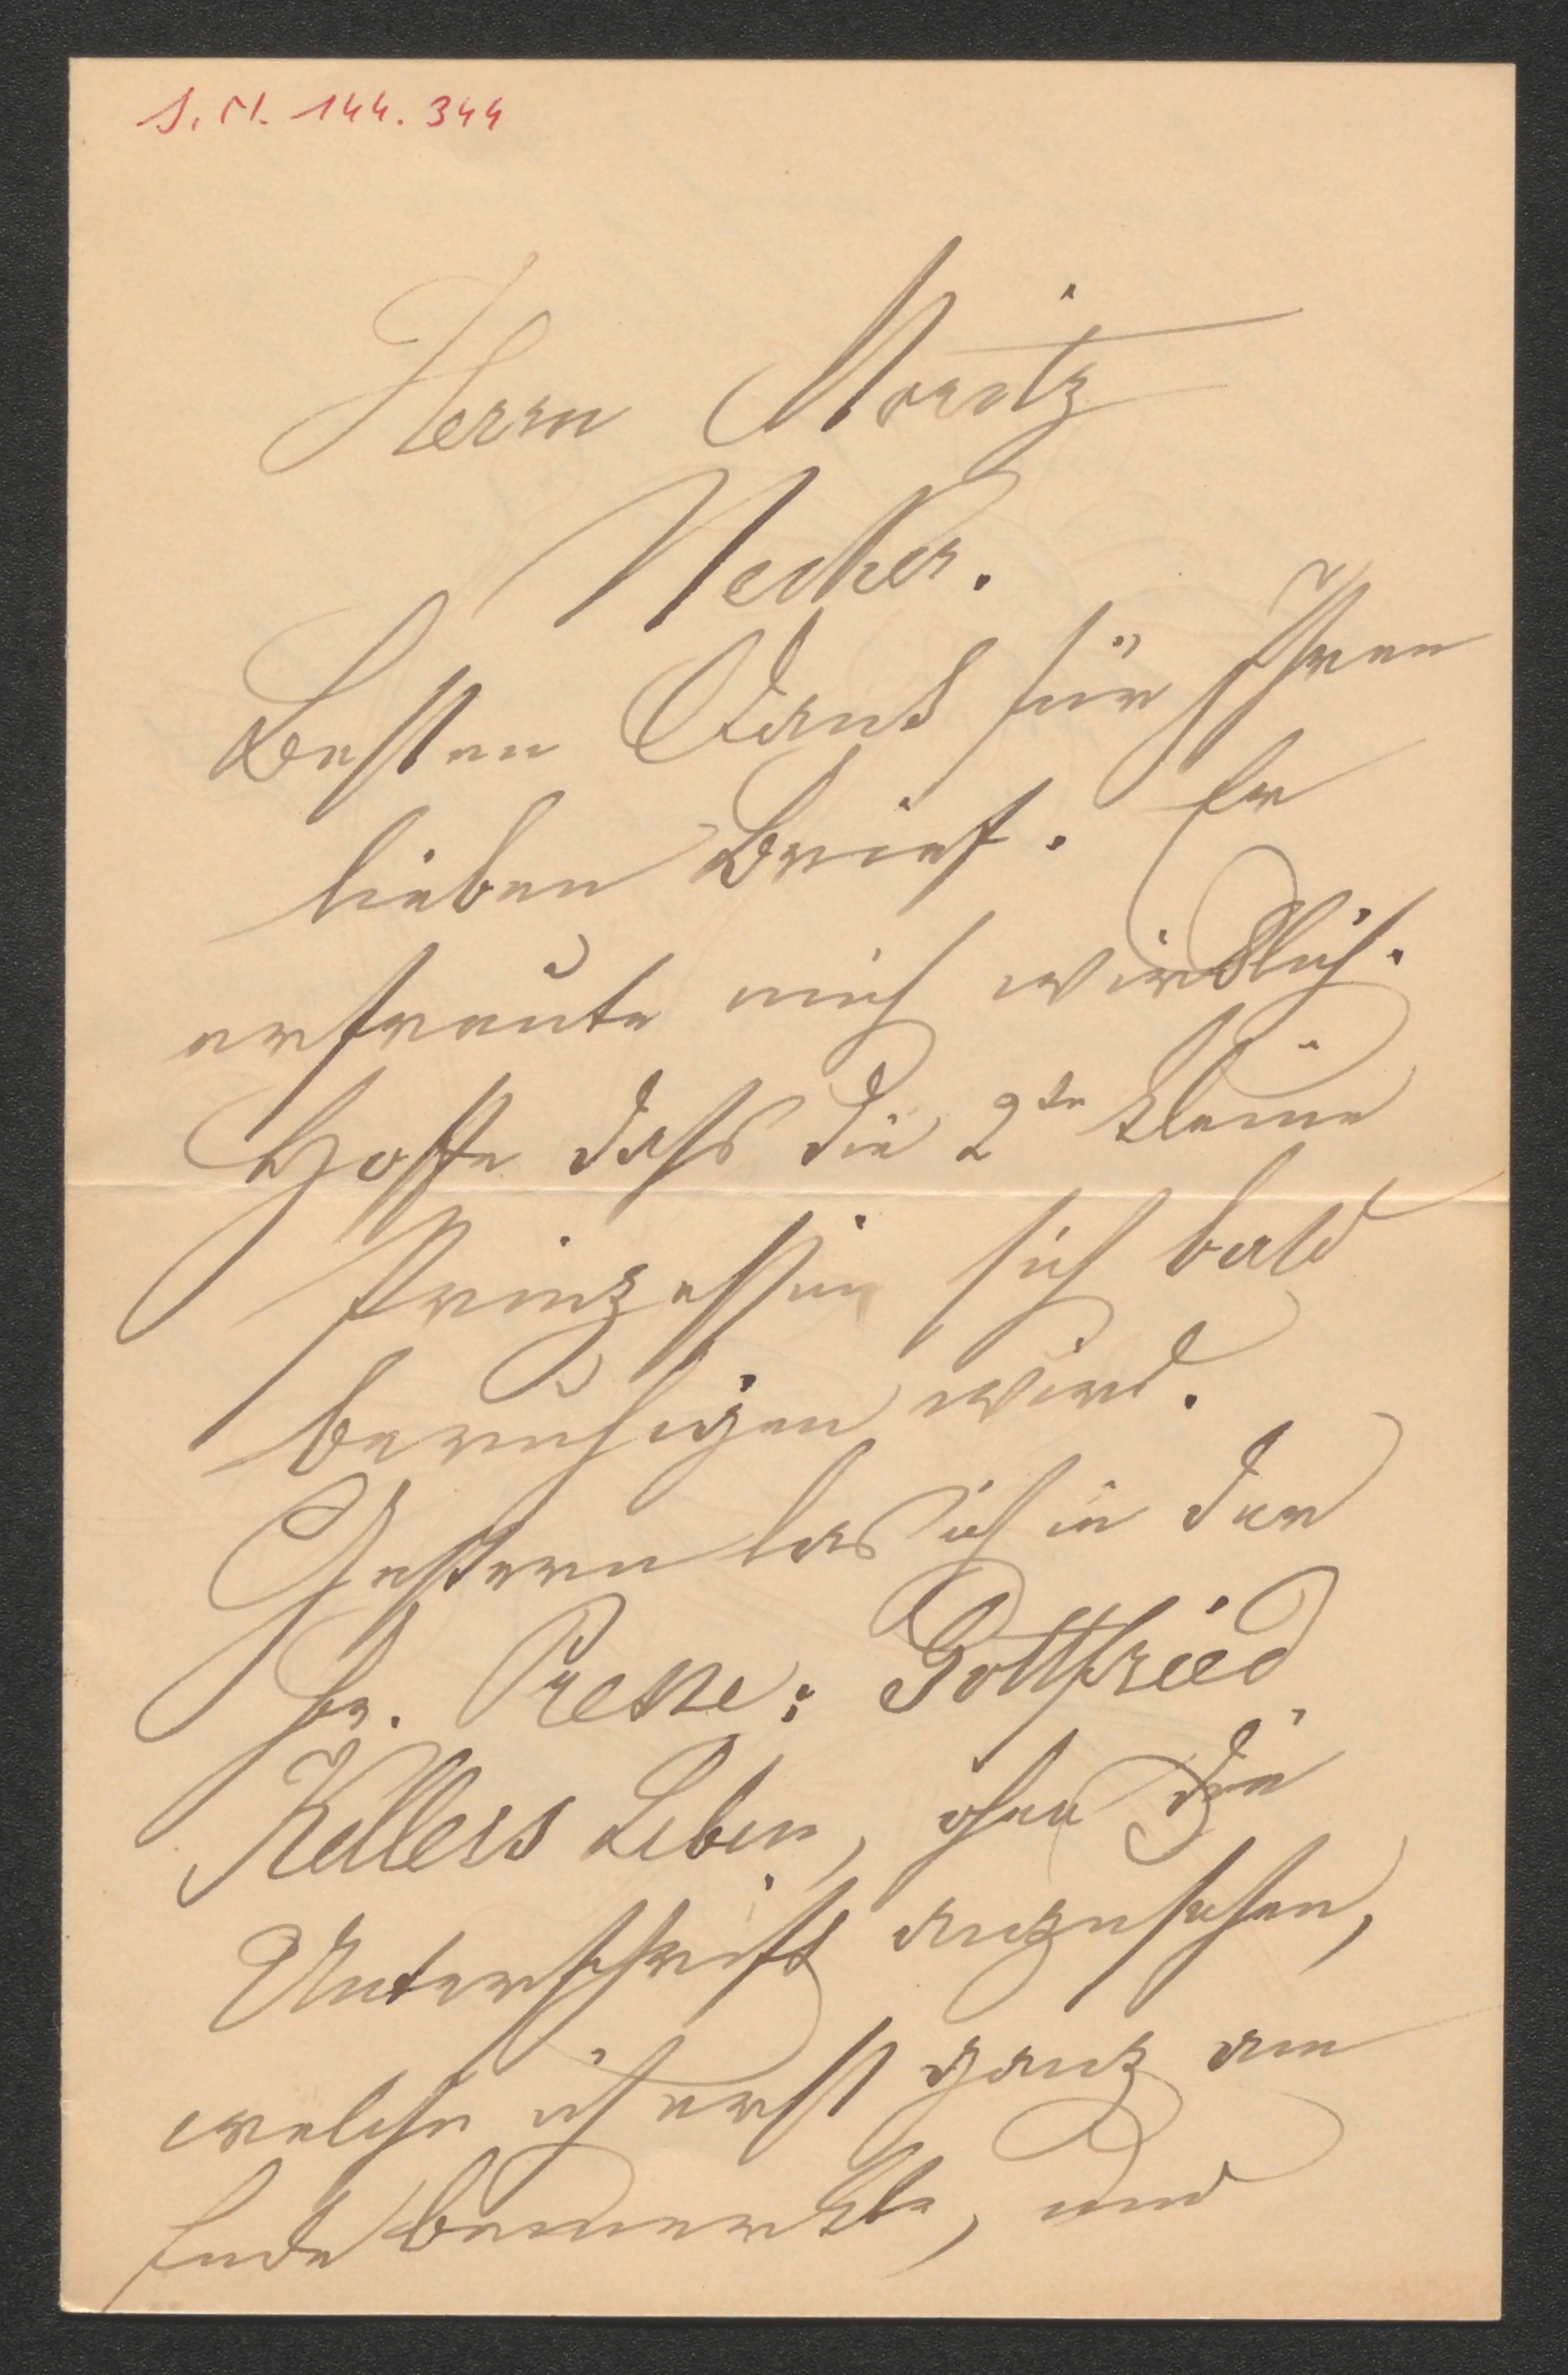 I. N. 144.344
Herrn Moritz
Necker.
Besten Dank für Ihren
lieben Brief. Er
erfreute mich wirklich.
Hoffe dass die 2te kleine
Prinzessin sich bald
beruhigen wird.
Gestern las ich in der
fr. Presse: Gottfried
Kellers Leben, ohne die
Unterschrift anzusehen,
welche ich erst ganz am
Ende bemerkte, und